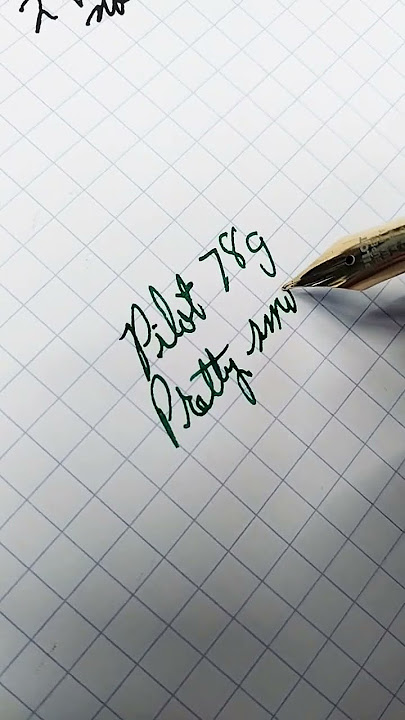 Pilot 78g
Pretty smo